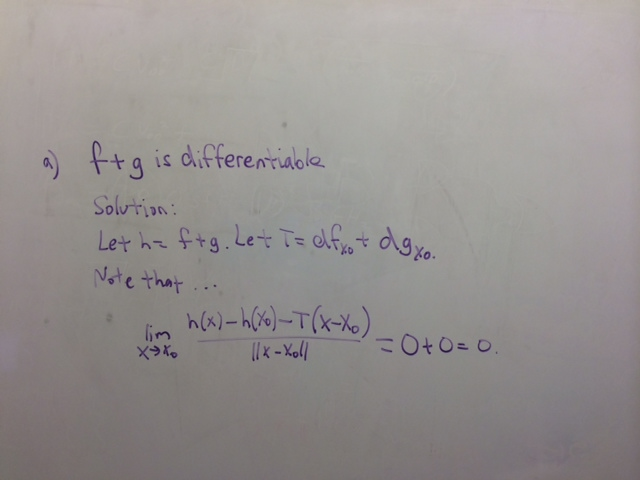 a) f+g is differentiable
Solution:
Let h = f+g. Let T = df_{x_0} + dg_{x_0}.
Note that ...
lim_{x→x_0} \frac{h(x)-h(x_0)-T(x-x_0)}{||x-x_0||} = 0+0 = 0.